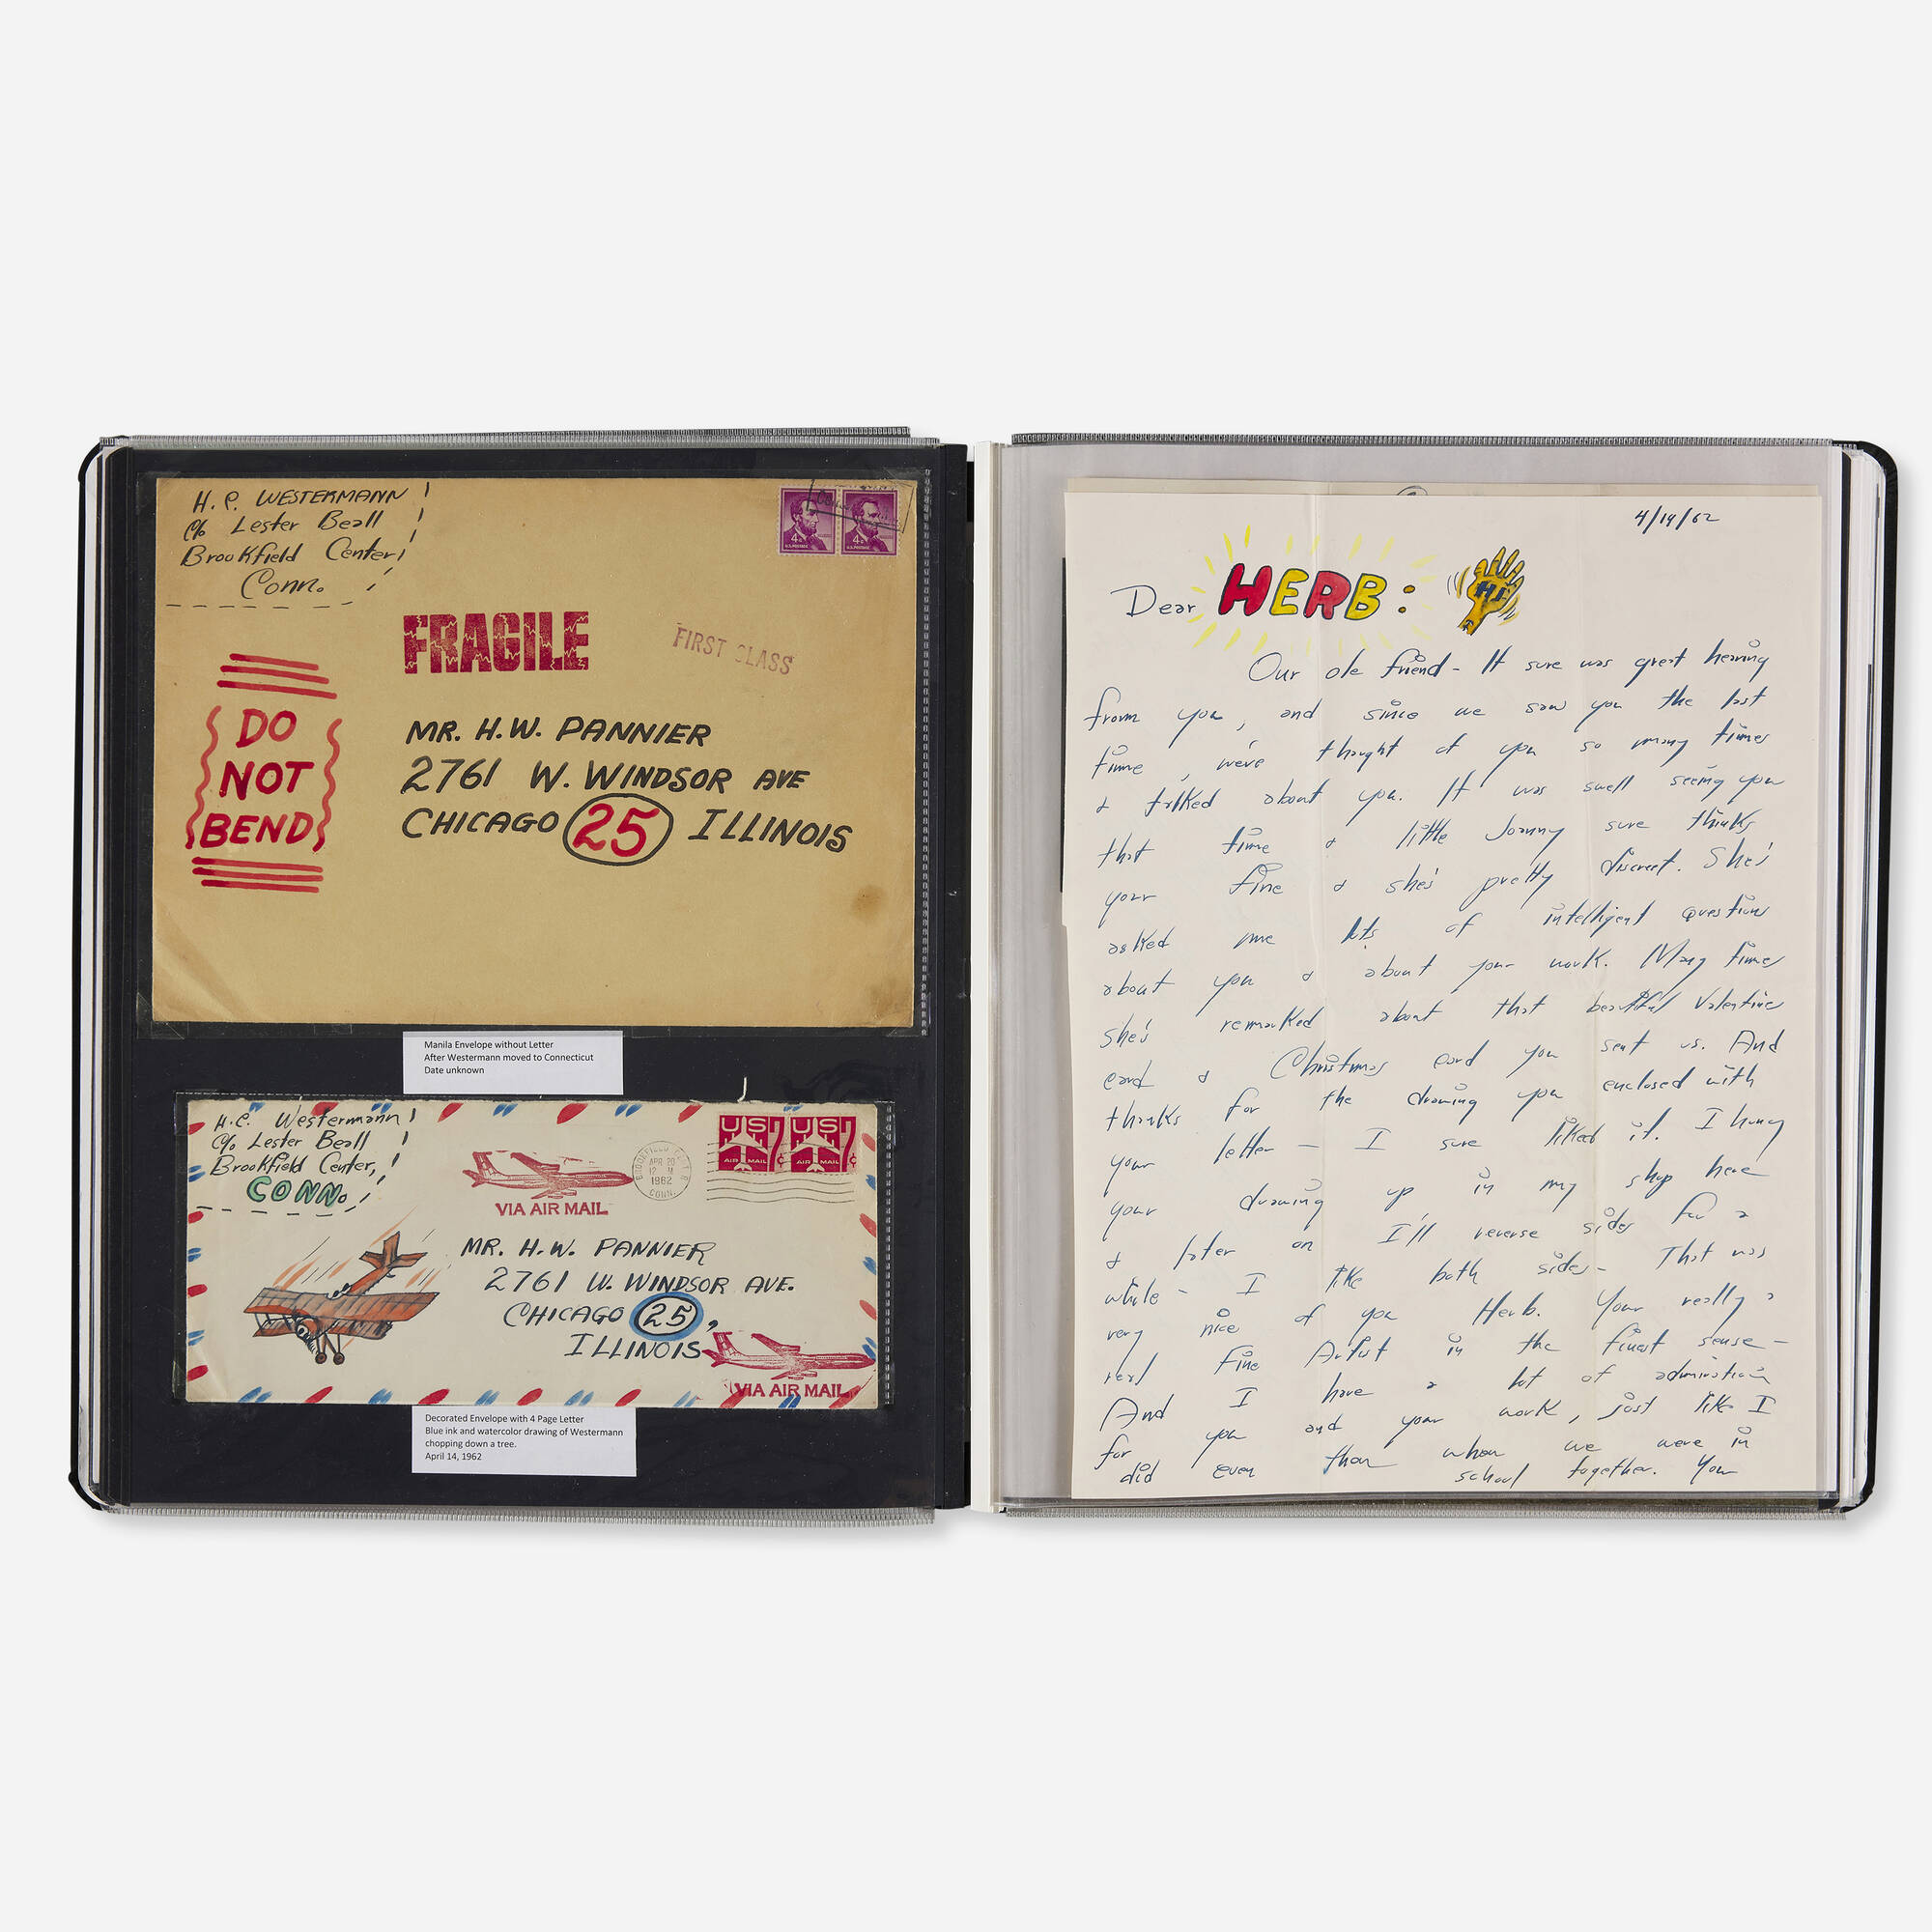 H.C. WESTERMANN
c/o Lester Beall
Brookfield Center,
Conn.
4¢
U.S. POSTAGE
4¢
U.S. POSTAGE
FRAGILE
FIRST CLASS
DO
NOT
BEND
MR. H.W. PANNIER
2761 W. WINDSOR AVE
CHICAGO 25 ILLINOIS
Manila Envelope without Letter
After Westermann moved to Connecticut
Date unknown
H.C. Westermann
c/o Lester Beall
Brookfield Center,
CONN.
VIA AIR MAIL
BROOKFIELD CENTER
APR 20
12 M
1962
CONN.
US 7¢
AIR MAIL
US 7¢
AIR MAIL
MR. H.W. PANNIER
2761 W. WINDSOR AVE.
CHICAGO 25,
ILLINOIS
VIA AIR MAIL
Decorated Envelope with 4 Page Letter
Blue ink and watercolor drawing of Westermann
chopping down a tree.
April 14, 1962
4/14/62
Dear HERB: HI
Our ole friend - It sure was great hearing
from you, and since we saw you the last
time, we've thought of you so many times
& talked about you. It was swell seeing you
that time & little Joanny sure thinks
your fine & she's pretty discreet. She's
asked me lots of intelligent question
about you & about your work. Many times
she's remarked about that beautiful Valentine
card & Christmas card you sent us. And
thanks for the drawing you enclosed with
your letter — I sure liked it. I hung
your drawing up in my shop here
& later on I'll reverse sides for a
while - I like both sides - That was
very nice of you Herb. Your really a
real fine Artist in the finest sense -
And I have a lot of admiration
for you and your work, just like I
did even than when we were in
school together. You